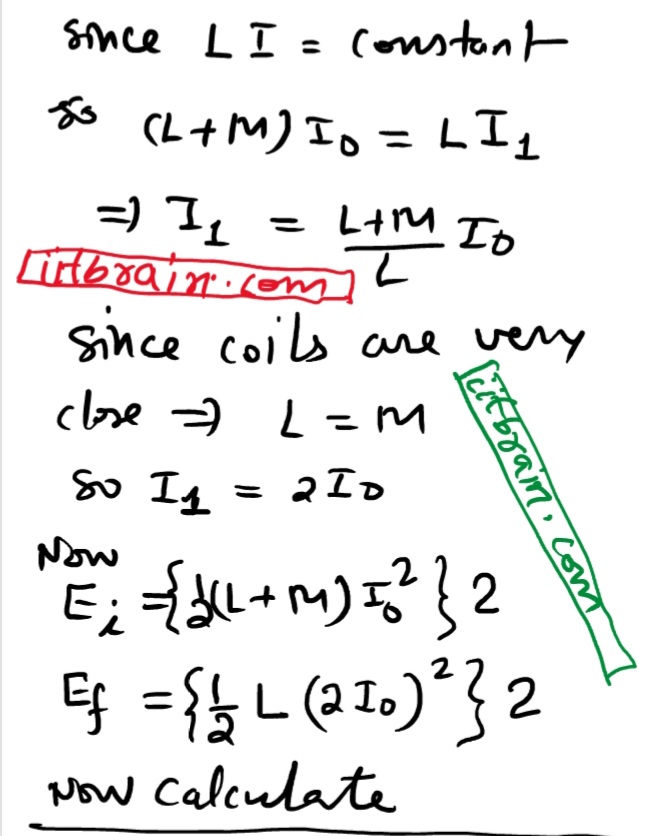 since L I = constant
so (L+M) I₀ = L I₁
⇒ I₁ = (L+M)/L I₀
iitbrain.com
since coils are very
close ⇒ L = M
so I₁ = 2I₀
iitbrain.com
Now
Eᵢ = {1/2 (L+M) I₀²} 2
E_f = {1/2 L (2I₀)²} 2
Now calculate